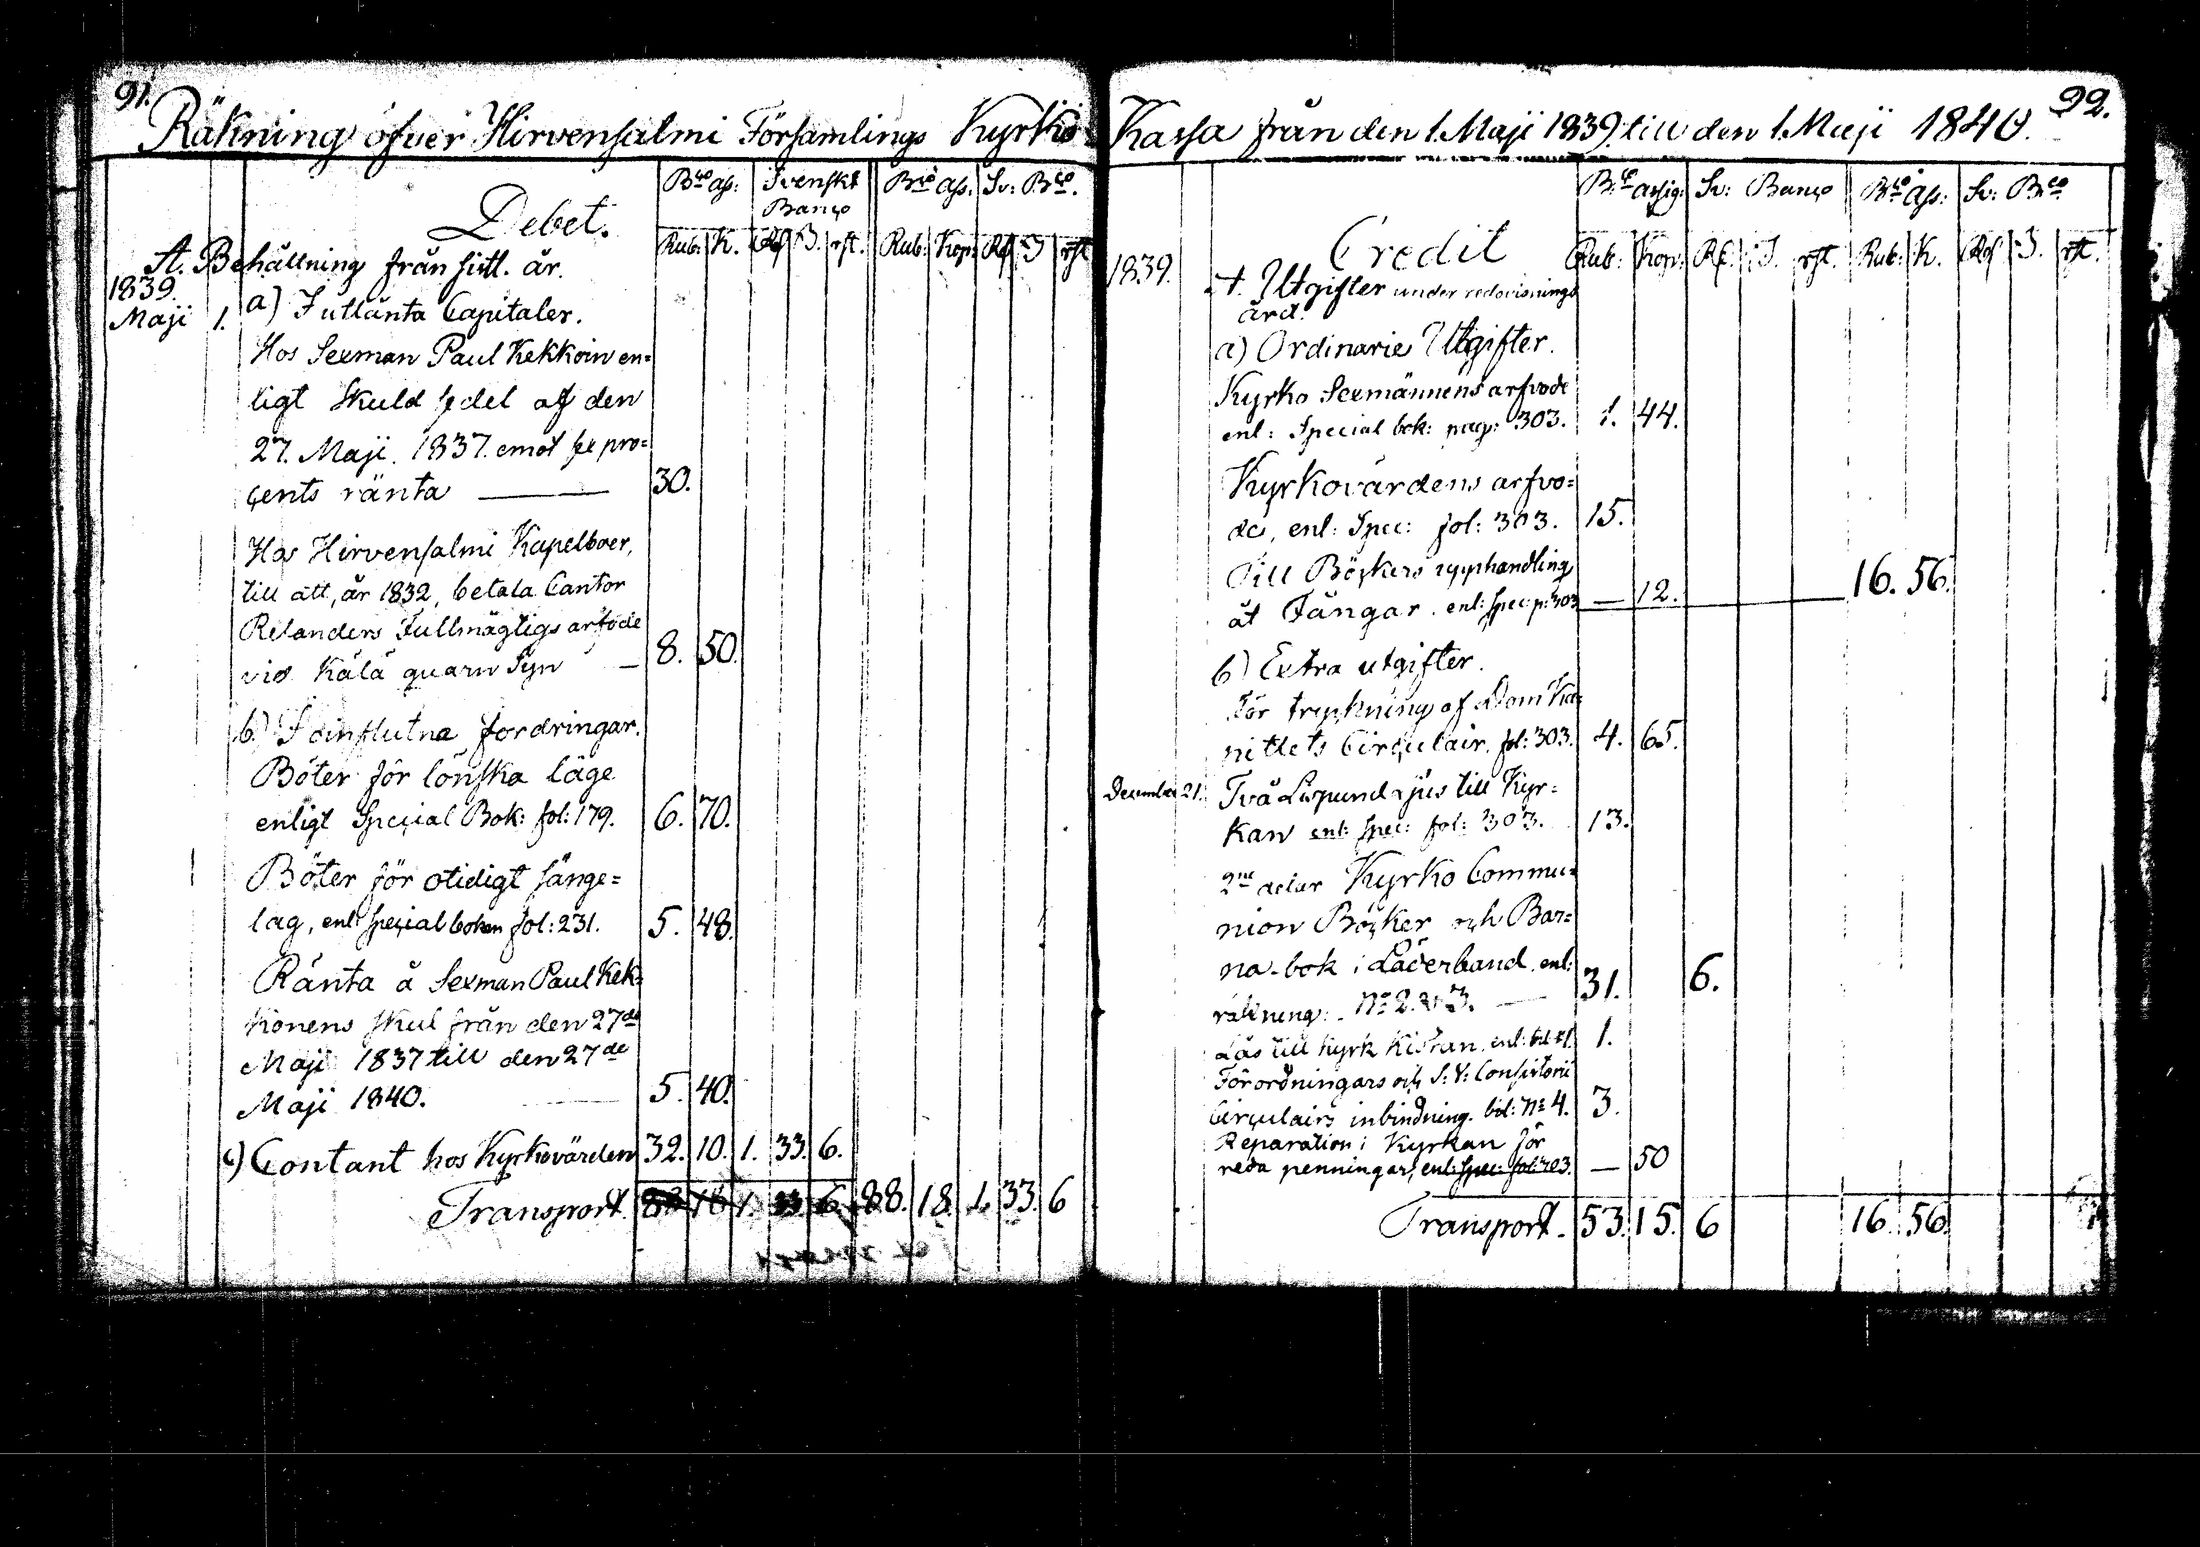 91.
Räkning öfver Hirvensalmi Församlings Kyrko
Bco ass: Svenskt Banco Bco ass. Sv: Bco.
Debet.
Rub: K. Rd ß. rst. Rub: Kop: Rd ß rst
A. Behållning från sistl. år.
1839.
Maji 1. a) I utlånta Capitaler.
Hos Sexman Paul Kekkoin en=
ligt Skuld sedel af den
27. Maji. 1837. emot sex pro=
cents ränta — 30.
Hos Hirvensalmi Kapelboer,
till att, år 1832, betala Cantor
Relanders Fullmägtigs arfode
vid Kälä quarn Syn — 8. 50.
b) I oinflutna fordringar.
Böter för lönska läge
enligt Special Bok: fol: 179. 6. 70.
Böter för otidigt sänge=
lag, enl: special boken fol: 231. 5. 48.
Ränta å Sexman Paul Kek=
konens skul från den 27de
Maji 1837 till den 27de
Maji 1840. — 5. 40.
c) Contant hos Kyrkovärden 32. 10. 1. 33. 6.
Transport. 88 18 1. 33. 6. 88. 18. 1. 33. 6
92.
Kassa från den 1. Maji 1839. till den 1. Maji 1840.
Bco assig: Sv: Banco Bco Ass: Sv: Bco
Credit
Rub: Kop: Rd. ß. rst. Rub: K. Rd ß. rst.
1839. A. Utgifter under redovisnings
året.
a) Ordinarie Utgifter.
Kyrko Sexmännens arfvode
enl: Special bok: pag: 303. 1. 44.
Kyrkovärdens arfvo=
de, enl: Spec: fol: 303. 15.
Till Böckers upphandling
åt Fångar. enl: spec: p: 303 — 12. — 16. 56.
b) Extra utgifter.
För tryckning af Dom Ka=
pitlets Circulair. fol: 303. 4. 65.
December 21. Två Lispund Ljus till Kyr=
kan enl: spec: fol: 303. 13.
2ne delar Kyrko Commu=
nion Böcker och Bar=
na-bok i Läderband. enl:
räkning: No 2. & 3. — 31. 6.
Lås till Kyrk Kistan. enl: bil: 1.
Förordningars och S: V: Consistorii
Circulairs inbindning. bil: No 4. 3.
Reparation i Kyrkan för
reda penningar, enl: spec: fol: 303. — 50
Transport. 53. 15. 6 16. 56.